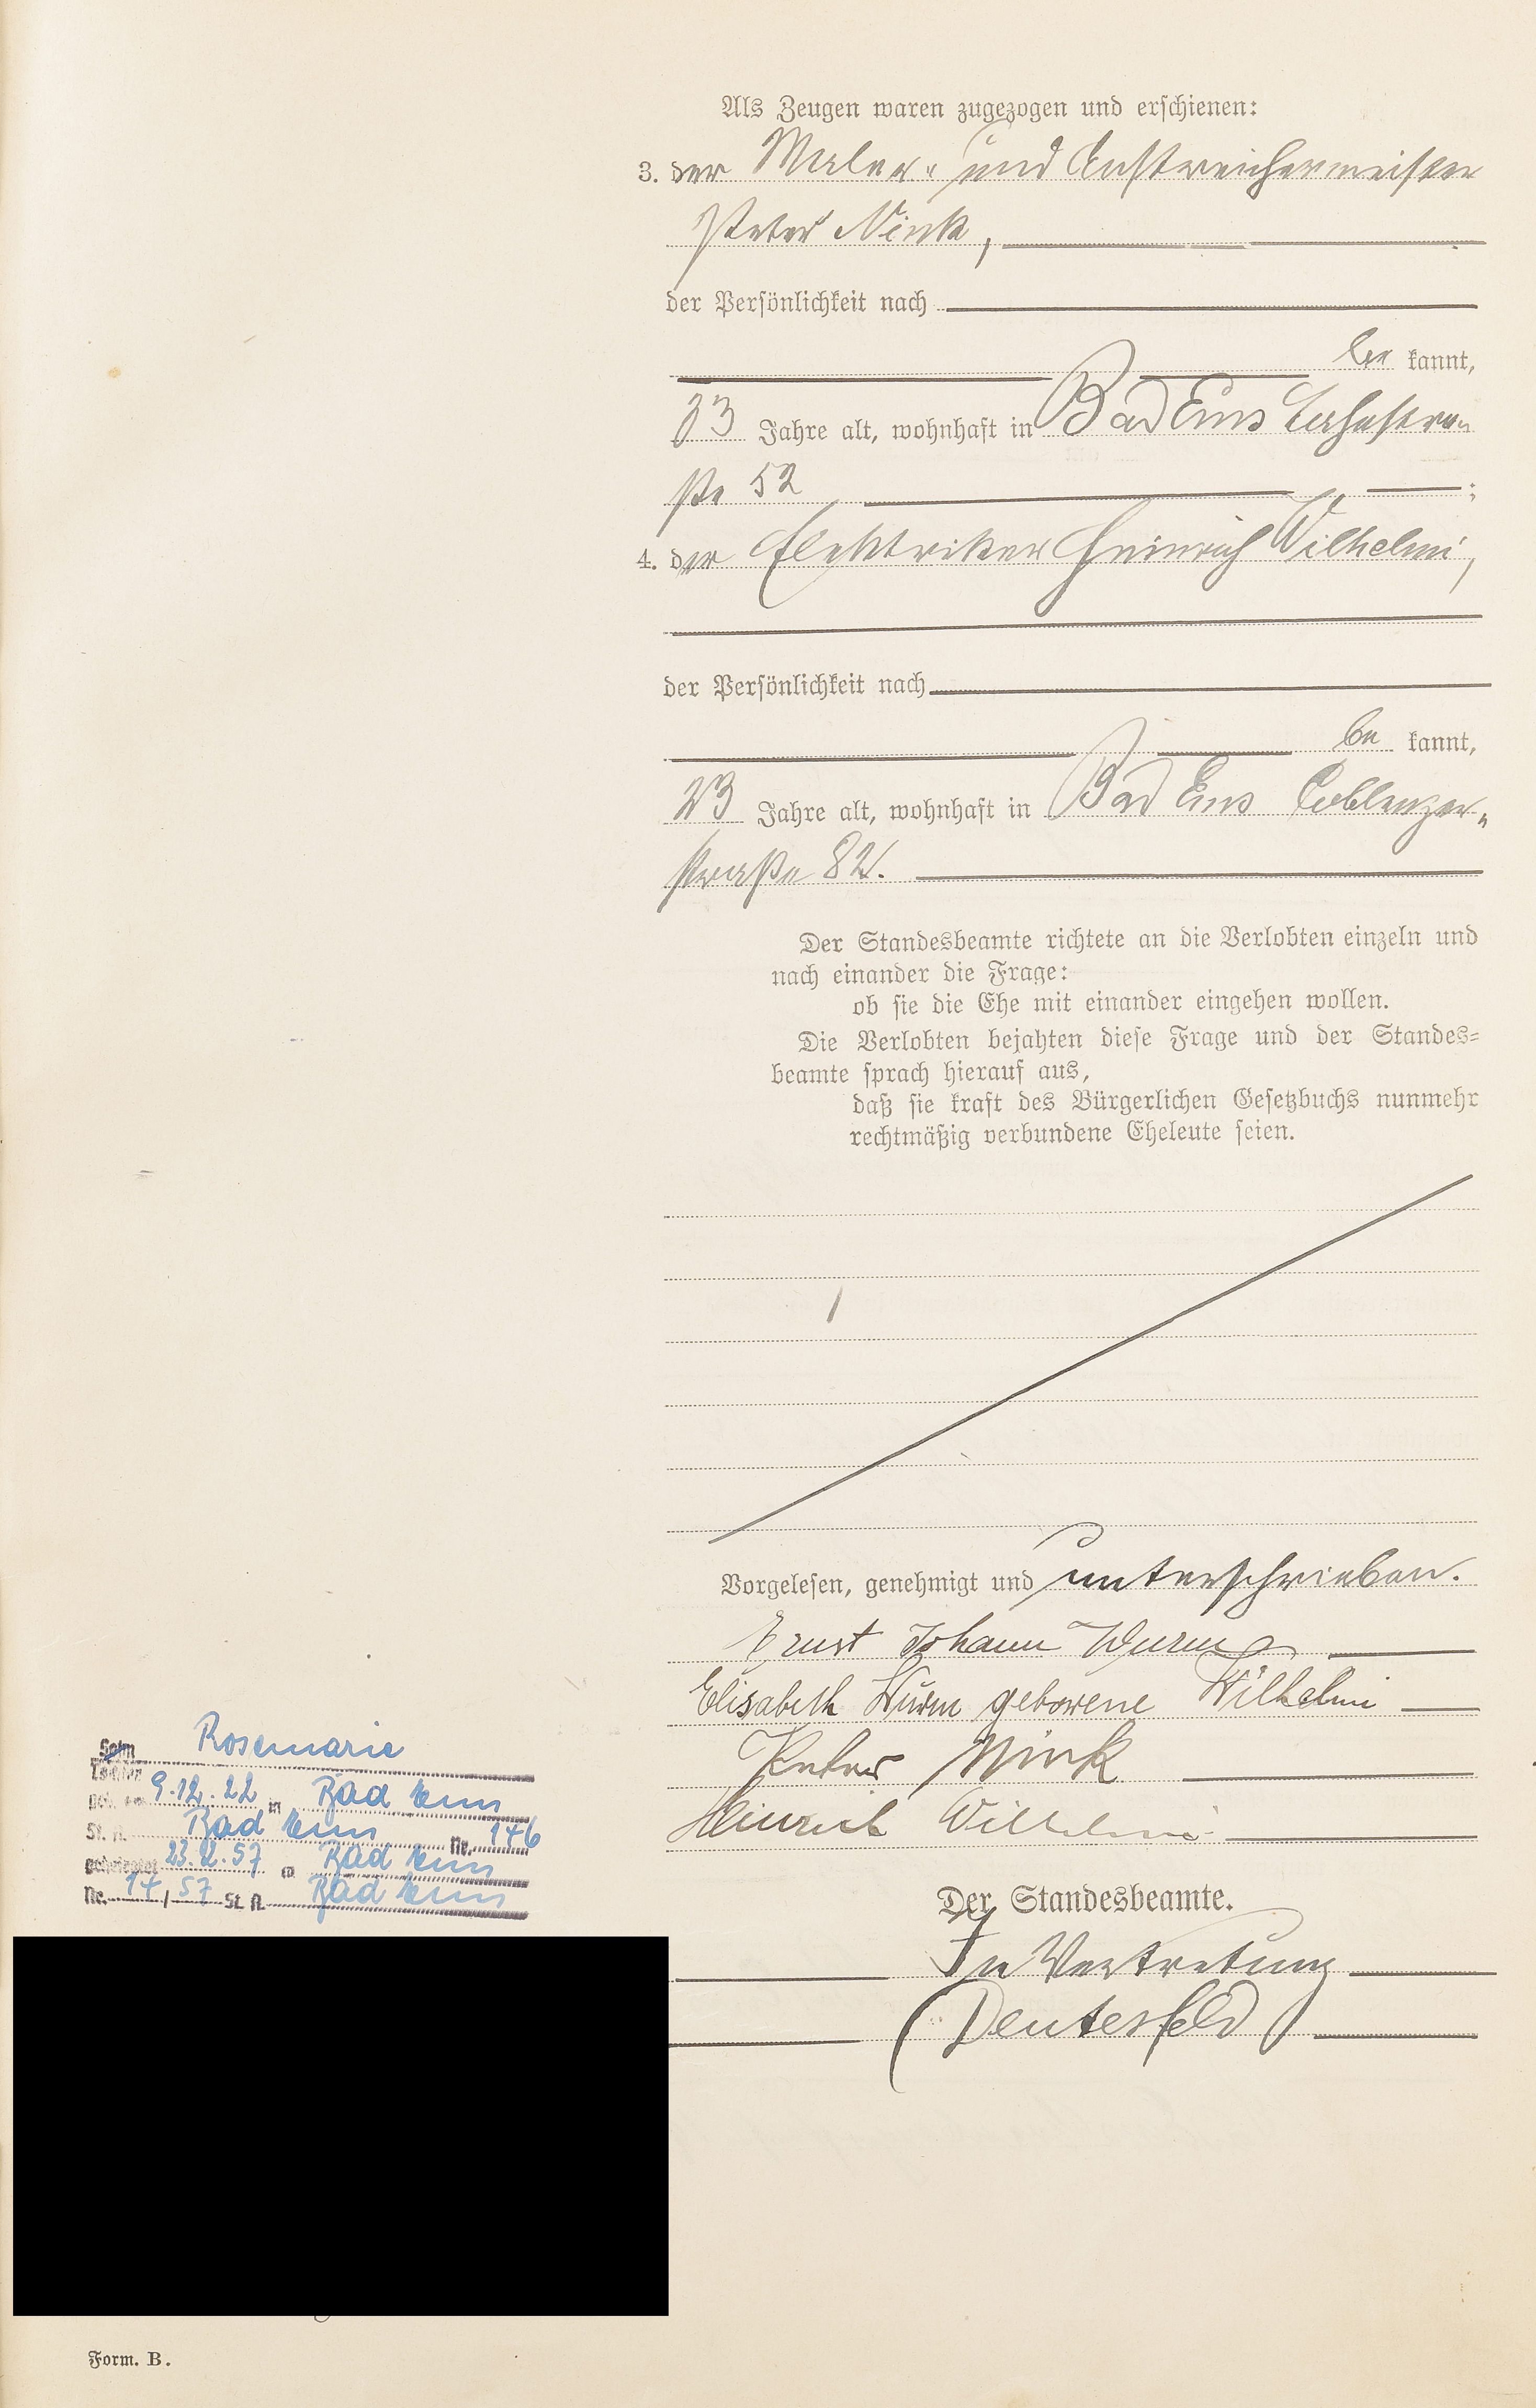 Als Zeugen waren zugezogen und erschienen:
3. der Maler- und Anstreichermeister
Peter Nink,
der Persönlichkeit nach
be kannt,
33 Jahre alt, wohnhaft in Bad Ems Lahnstra-
ße 52 ;
4. der Elektriker Heinrich Wilhelmi,
der Persönlichkeit nach
be kannt,
23 Jahre alt, wohnhaft in Bad Ems Coblenzer-
straße 82.
Der Standesbeamte richtete an die Verlobten einzeln und
nach einander die Frage:
ob sie die Ehe mit einander eingehen wollen.
Die Verlobten bejahten diese Frage und der Standes=
beamte sprach hierauf aus,
daß sie kraft des Bürgerlichen Gesetzbuchs nunmehr
rechtmäßig verbundene Eheleute seien.
Vorgelesen, genehmigt und unterschrieben.
Ernst Johann Wurm
Elisabeth Wurm geborene Wilhelmi
Peter Nink
Heinrich Wilhelmi
Der Standesbeamte.
In Vertretung
Deutesfeld
Sohn Rosemarie
Tochter
geb. am 9.12.22 in Bad Ems
St. A. Bad Ems Nr. 146
geheiratet 23.2.57 in Bad Ems
Nr. 14 / 57 St. A. Bad Ems
Form. B.